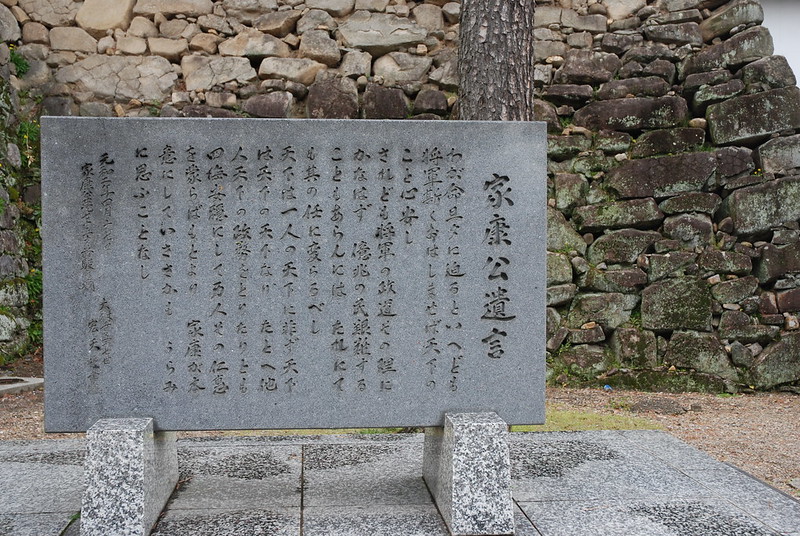 家康公遺言
わが命旦夕に迫るといへども
将軍斯くおはしませば天下の
こと心安し
されども将軍の政道その理に
かなはず億兆の民艱難する
こともあらんには たれにて
も其の任に変らるべし
天下は一人の天下に非ず天下
は天下の天下なり たとへ他
人天下の政務をとりたりとも
四海安穏にして万人その仁恩
を蒙らばもとより 家康が本
意にしていささかも うらみ
に思ふことなし
元和二年四月十七日
家康公